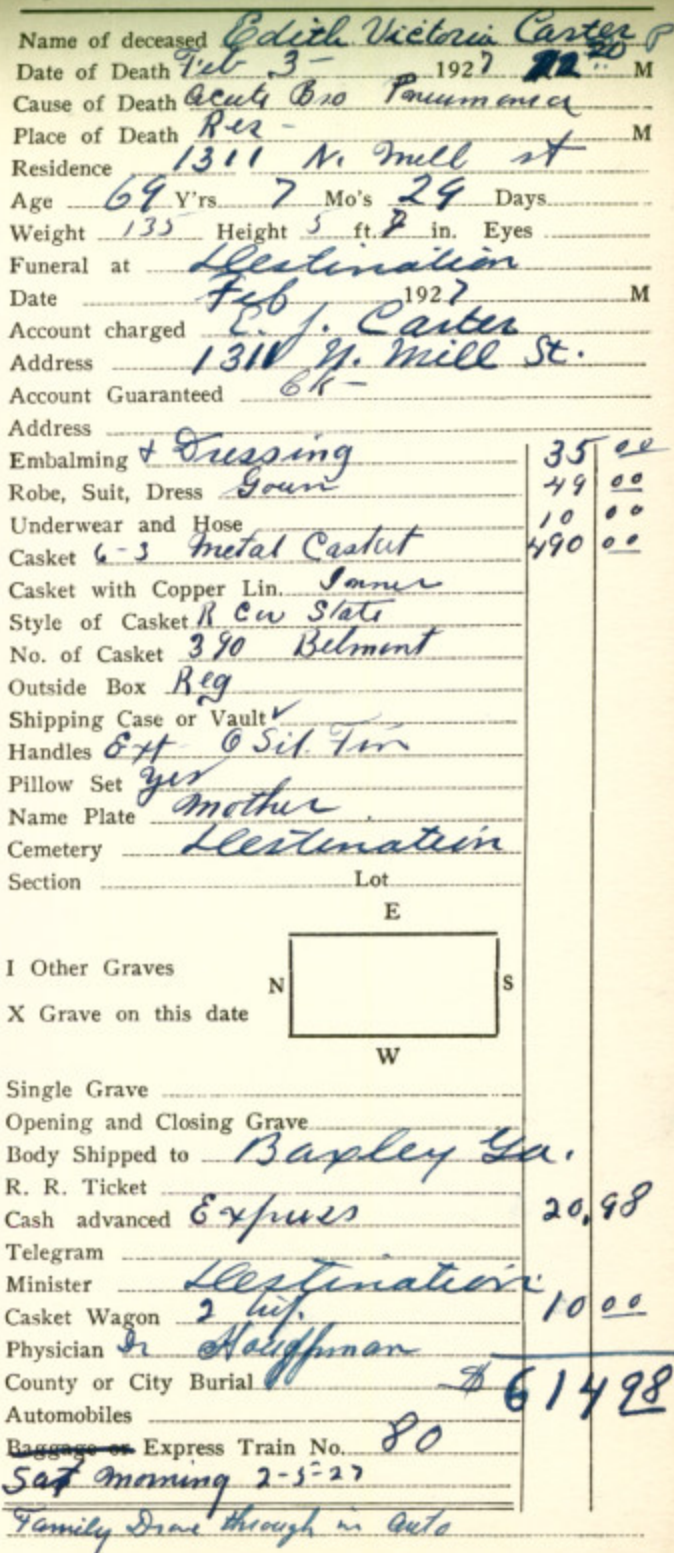 Name of deceased Edith Victoria Carter
Date of Death Feb 3- 1927 M
Cause of Death Acute Bro Pneumonia
Place of Death Res- M
Residence 1311 N. Mill st
Age 69 Y'rs 7 Mo's 29 Days
Weight 135 Height 5 ft. in. Eyes
Funeral at Destination
Date Feb 1927 M
Account charged E. J. Carter
Address 1311 N. Mill St.
Account Guaranteed
Address
Embalming + Dressing 35 00
Robe, Suit, Dress Gown 49 00
Underwear and Hose 10 00
Casket 6-3 Metal Casket 490 00
Casket with Copper Lin. Inner
Style of Casket State
No. of Casket 390 Belmont
Outside Box Reg
Shipping Case or Vault ✓
Handles Ext 6 Sil.
Pillow Set Yes
Name Plate Mother
Cemetery Destination
Section Lot
E
I Other Graves
N S
X Grave on this date
W
Single Grave
Opening and Closing Grave
Body Shipped to Baxley Ga.
R. R. Ticket
Cash advanced Express 20,98
Telegram
Minister Destination
Casket Wagon 2 10 00
Physician Dr
County or City Burial $ 614 98
Automobiles
Baggage or Express Train No. 80
Sat Morning 2-5-27
Family Drove through in auto